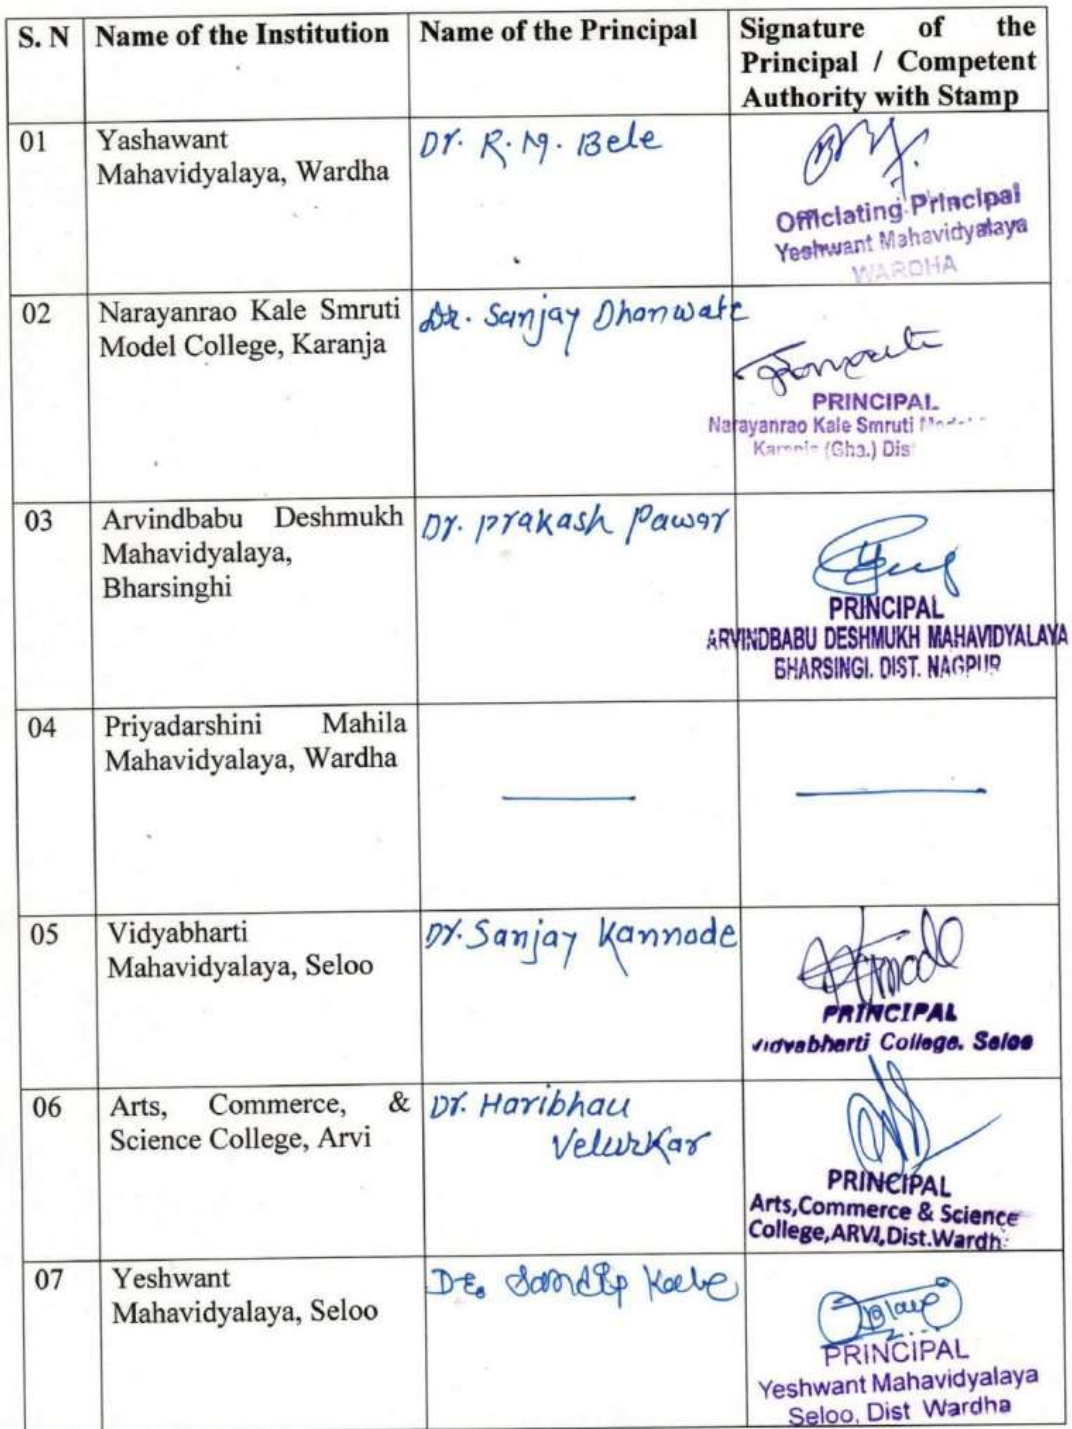 S. N
Name of the Institution
Name of the Principal
Signature of the
Principal / Competent
Authority with Stamp
01
Yashawant
Mahavidyalaya, Wardha
Dr. R. M. Bele
Officiating Principal
Yeshwant Mahavidyalaya
WARDHA
02
Narayanrao Kale Smruti
Model College, Karanja
Dr. Sanjay Dhanwate
PRINCIPAL
Narayanrao Kale Smruti Model
(Gha.) Dis
03
Arvindbabu Deshmukh
Mahavidyalaya,
Bharsinghi
Dr. Prakash Pawar
PRINCIPAL
ARVINDBABU DESHMUKH MAHAVIDYALAYA
BHARSINGI. DIST. NAGPUR
04
Priyadarshini Mahila
Mahavidyalaya, Wardha
05
Vidyabharti
Mahavidyalaya, Seloo
Dr. Sanjay Kannode
PRINCIPAL
Vidyabharti College. Seloo
06
Arts, Commerce, &
Science College, Arvi
Dr. Haribhau
Velurkar
PRINCIPAL
Arts,Commerce & Science
College,ARVI,Dist.Wardh
07
Yeshwant
Mahavidyalaya, Seloo
Dr. Sandip Kale
PRINCIPAL
Yeshwant Mahavidyalaya
Seloo, Dist Wardha